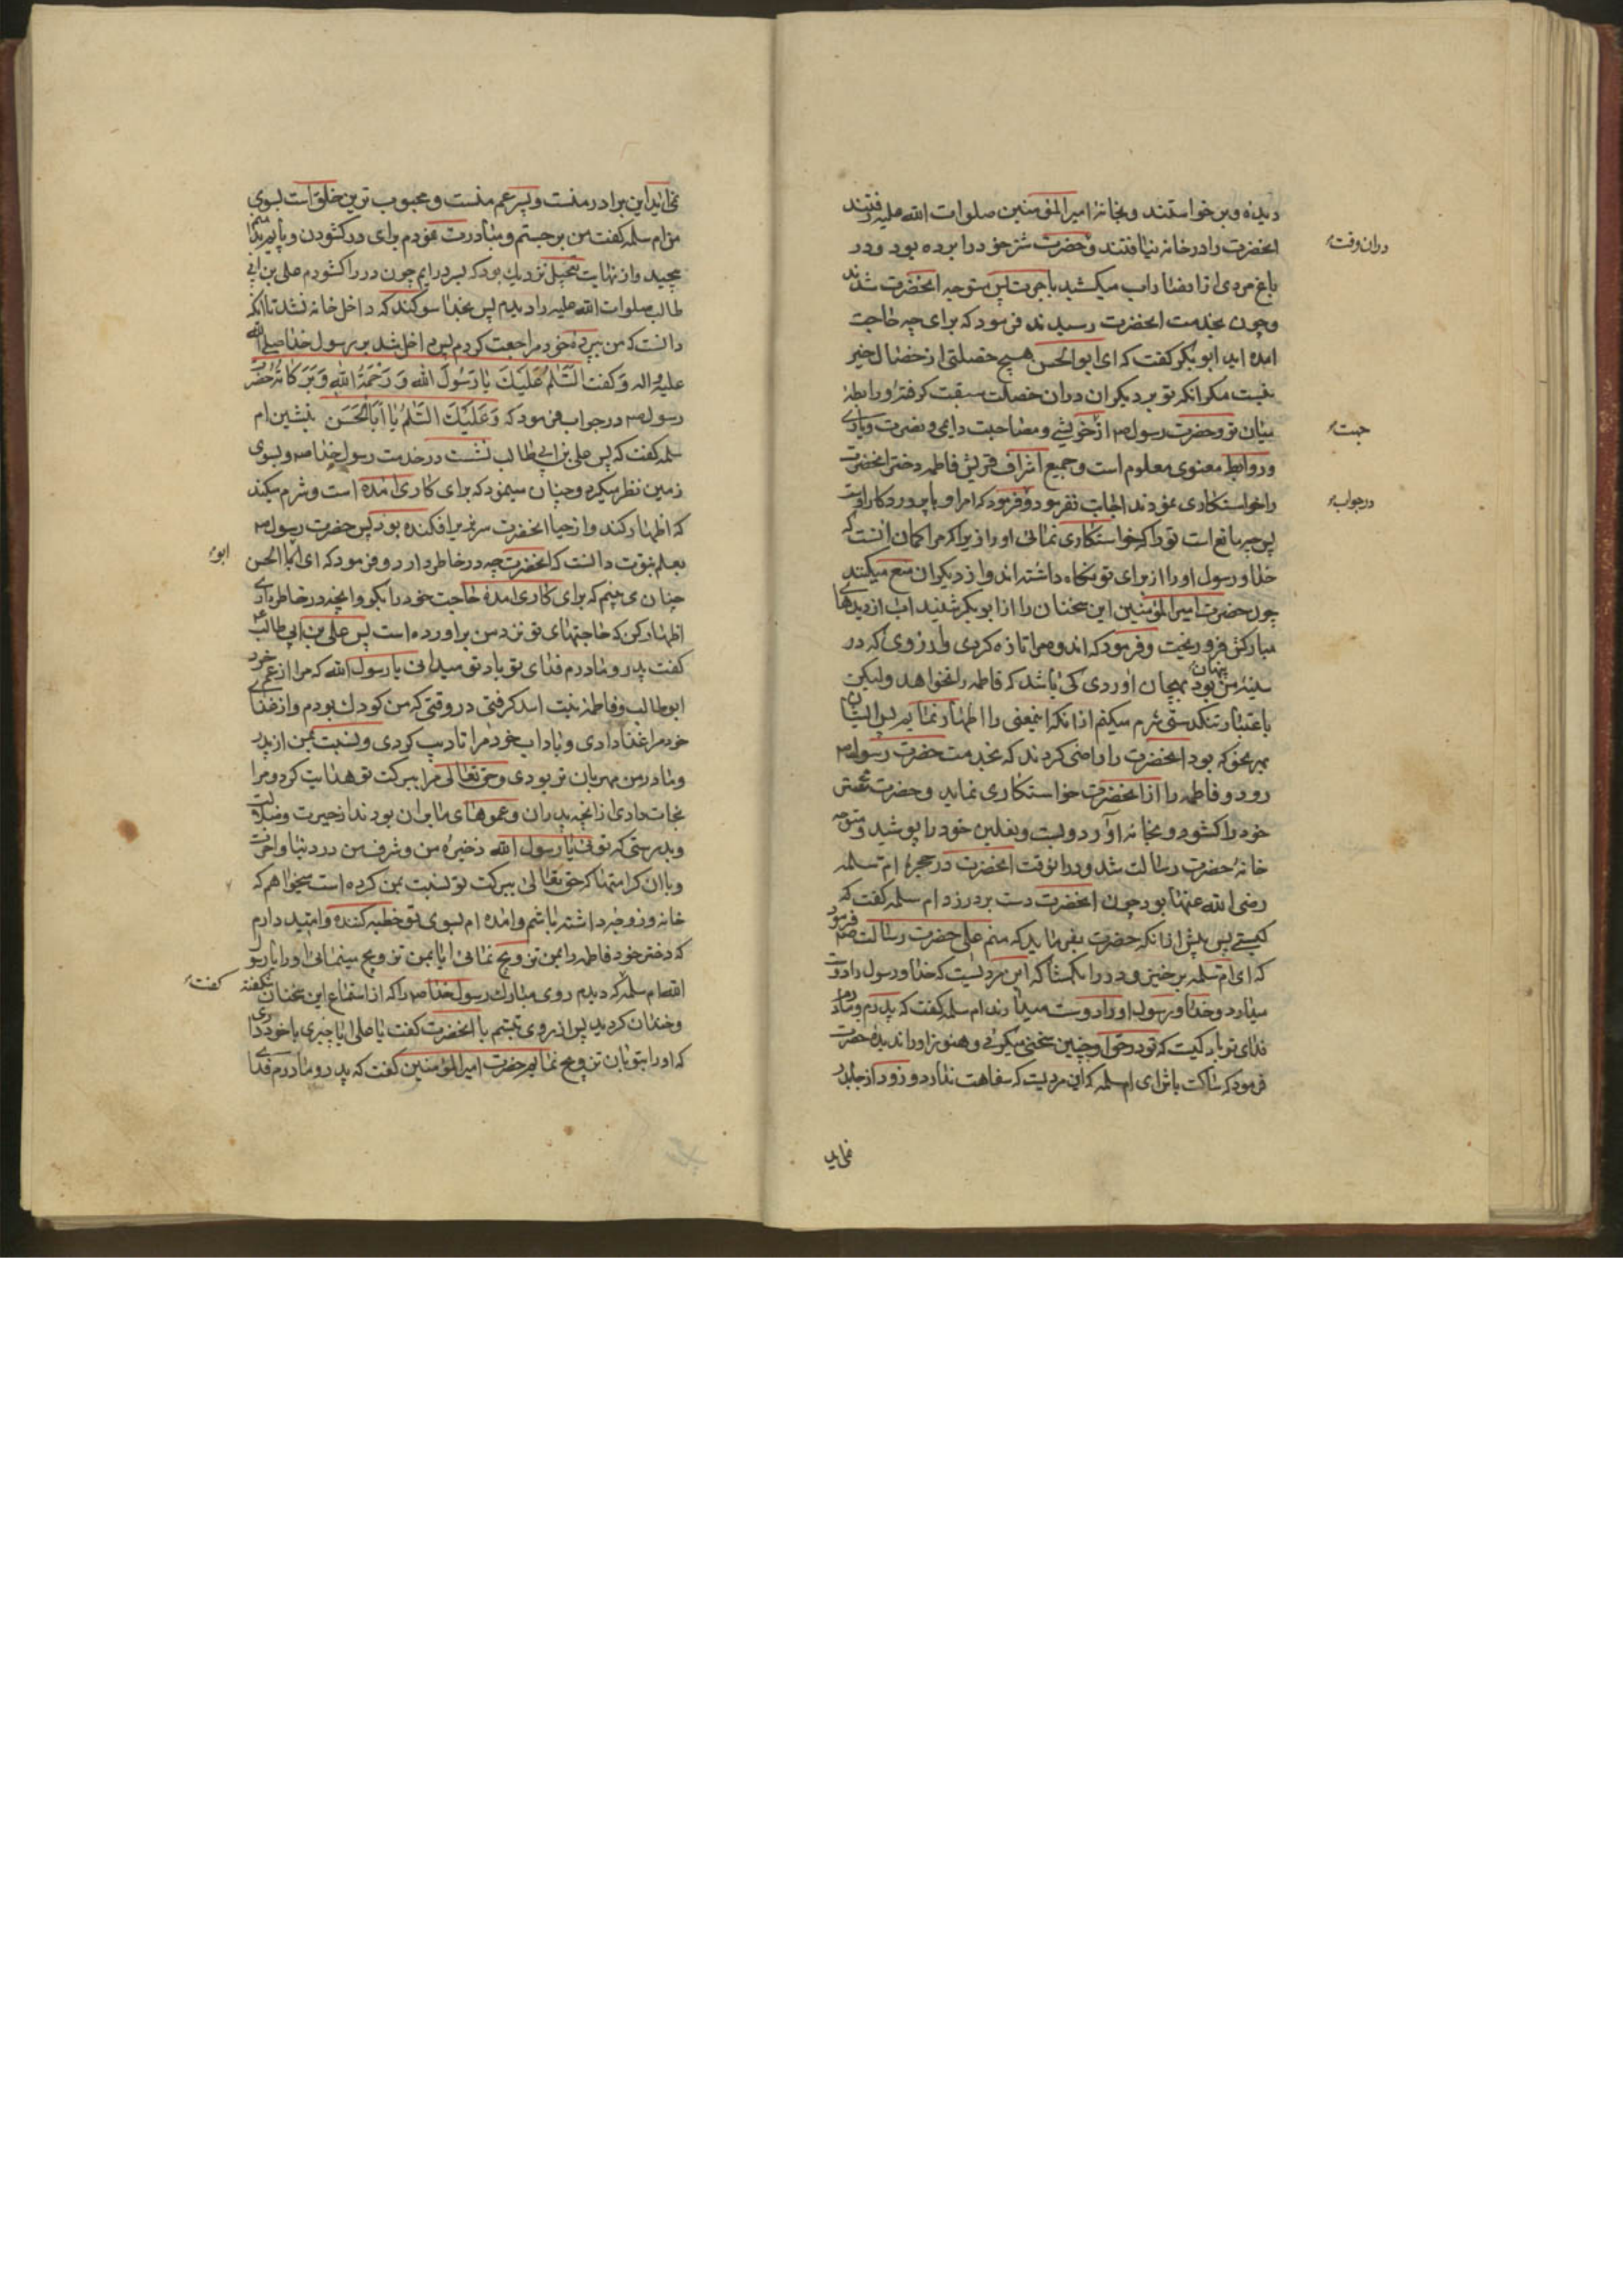 دیده و برخواستند و بخانهٔ امیرالمؤمنین صلوات الله علیه رفتند
انحضرت را در خانه نیافتند و حضرت شتر خود را برده بود و در
باغ مردی از انصار اب میکشید باجرت پس متوجه انحضرت شدند
و چون بخدمت انحضرت رسیدند فرمود که برای چه حاجت
امده اید ابو بکر کفت که ای ابوالحسن هیچ خصلتی از خصال خیر
نیست مکر انکه تو بر دیکران دران خصلت سبقت کرفتهٔ و رابطهٔ
میان تو و حضرت رسول ص از خویشی و مصاحبت دایمی و نصرت و یاری
و روابط معنوی معلوم است و جمیع اشراف قریش فاطمه دختر انحضرت
را خواستکاری نمودند اجابت نفرمود و فرمود که امر او با پروردکار اوست
پس چه مانع است تو را که خواستکاری نمائی او را زیرا که مرا کمان انست که
خدا و رسول او را از برای تو نکاه داشته اند و از دیکران منع میکنند
چون حضرت امیرالمؤمنین این سخنان را از ابو بکر شنید اب از دیدهای
مبارکش فرو ریخت و فرمود که اندوه مرا تازه کردی و ارزوی که در
سینهٔ من پنهان بود بهیجان اوردی کی باشد که فاطمه را نخواهد ولیکن
باعتبار تنکدستی شرم میکنم از انکه اینمعنی را اظهار نمایم پس ایشان
بهر نحو که بود انحضرت را راضی کردند که بخدمت حضرت رسول ص
رود و فاطمه را از انحضرت خواستکاری نماید و حضرت شتر
خود را کشود و بخانه آورد و بست و نعلین خود را پوشید و متوجه
خانهٔ حضرت رسالت شد و درانوقت انحضرت در حجرهٔ ام سلمه
رضی الله عنها بود چون انحضرت دست بر در زد ام سلمه کفت که
کیستی پس پیش از انکه حضرت بفرماید که منم علی حضرت رسالت ص فرمود
که ای ام سلمه برخیز و در را بکشا که این مردیست که خدا و رسول را دوست
میدارد و خدا و رسول او را دوست میدارند ام سلمه کفت که پدرم و مادرم
فدای تو باد کیست که تو در حق او چنین سخنی میکوئی و هنوز او را ندیدهٔ حضرت
فرمود که ساکت باش ای ام سلمه که این مردیست که سفاهت ندارد و زود از جا بدر
نمی اید
دران وقت
جهت
در جواب
نمی اید این برادر منست و پسر عم منست و محبوب ترین خلق است بسوی
من ام سلمه کفت من برجستم و مبادرت نمودم برای در کشودن و پایم بدامنم
پیچید و از نهایت تعجیل نزدیک بود که بسر درایم چون در را کشودم علی بن ابی
طالب صلوات الله علیه را دیدم پس بخدا سوکند که داخل خانه نشد تا انکه
دانست که من بپردهٔ خود مراجعت کردم پس داخل شد بر رسول خدا صلی الله
علیه و اله و کفت اَلسَّلٰمُ عَلَیْكَ یٰا رَسُولَ اللهِ وَ رَحْمَةُ اللهِ وَ بَرَکٰاتُهُ حضرت
رسول ص در جواب فرمود که وَ عَلَیْكَ السَّلٰمُ یٰا اَبَا الْحَسَن بنشین ام
سلمه کفت که پس علی بن ابی طالب نشست در خدمت رسول خدا ص و بسوی
زمین نظر میکرد و چنان مینمود که برای کاری امده است و شرم میکند
که اظهار کند و از حیا انحضرت سر بزیر افکنده بود پس حضرت رسول ص
بعلم نبوت دانست که انحضرت چه در خاطر دارد و فرمود که ای ابا الحسن
چنان می بینم که برای کاری امدهٔ حاجت خود را بکو و انچه در خاطر داری
اظهار کن که حاجتهای تو نزد من براورده است پس علی بن ابی طالب
کفت پدر و مادرم فدای تو باد تو میدانی یا رسول الله که مرا از عم خود
ابو طالب و فاطمهٔ بنت اسد کرفتی در وقتی که من کودک بودم و از غذای
خود مرا غذا دادی و باداب خود مرا تادیب کردی و نسبت بمن از پدر
و مادر من مهربان تر بودی و حق تعالی مرا ببرکت تو هدایت کرد و مرا
نجات داد از انچه پدران و عموهای ما بران بودند از حیرت و ضلالت
و بدرستی که توئی یا رسول الله ذخیرهٔ من و شرف من در دنیا و اخرت
و با ان کرامتها که حق تعالی ببرکت تو نسبت بمن کرده است میخواهم که
خانه و زوجه داشته باشم و امده ام بسوی تو خطبه کننده و امید دارم
که دختر خود فاطمه را بمن تزویج نمائی ایا بمن تزویج مینمائی او را یا رسول
الله ام سلمه که دیدم روی مبارک رسول خدا ص را که از استماع این سخنان شکفته
و خندان کردید پس از روی تبسم با انحضرت کفت یا علی ایا چیزی با خود داری
که او را بتو بان تزویج نمایم حضرت امیرالمؤمنین کفت که پدر و مادرم فدای
ابو
کفت